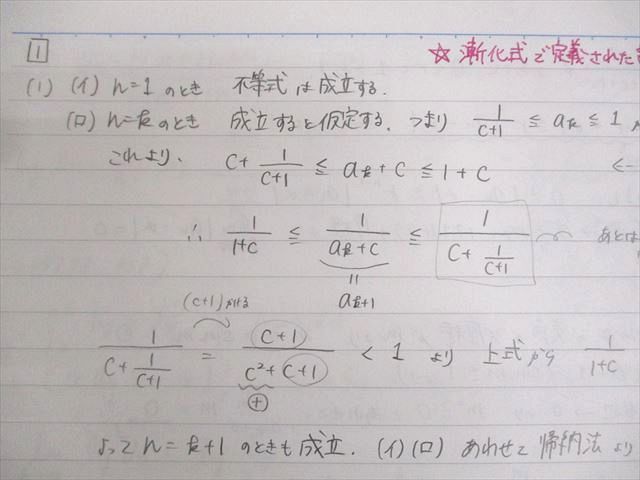 1
☆ 漸化式で定義された
(1) (イ) n=1 のとき 不等式は成立する.
(ロ) n=k のとき 成立すると仮定する. つまり 1/(c+1) ≦ ak ≦ 1
これより, c + 1/(c+1) ≦ ak + c ≦ 1 + c ←
∴ 1/(1+c) ≦ 1/(ak+c) ≦ 1/(c + 1/(c+1)) あとは
= ak+1
(c+1) かける
1/(c + 1/(c+1)) = (c+1)/(c²+(c+1)) < 1 より 上式から 1/(1+c)
⊕
よって n=k+1 のときも成立. (イ)(ロ) あわせて 帰納法より